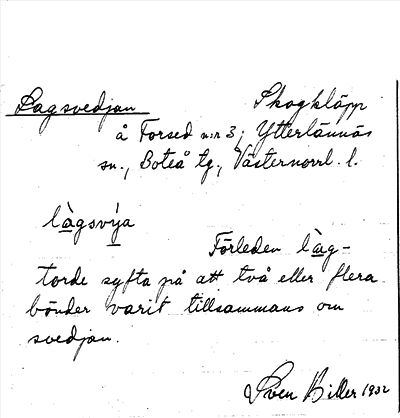 Lagsvedjan Skogkläpp
å Forsed n:r 3, Ytterlännäs
sn., Boteå tg., Västernorrl. l.
làgsvi̇̀ya Förleden làg-
torde syfta på att två eller flera
bönder varit tillsammans om
svedjan.
Sven Biller 1932